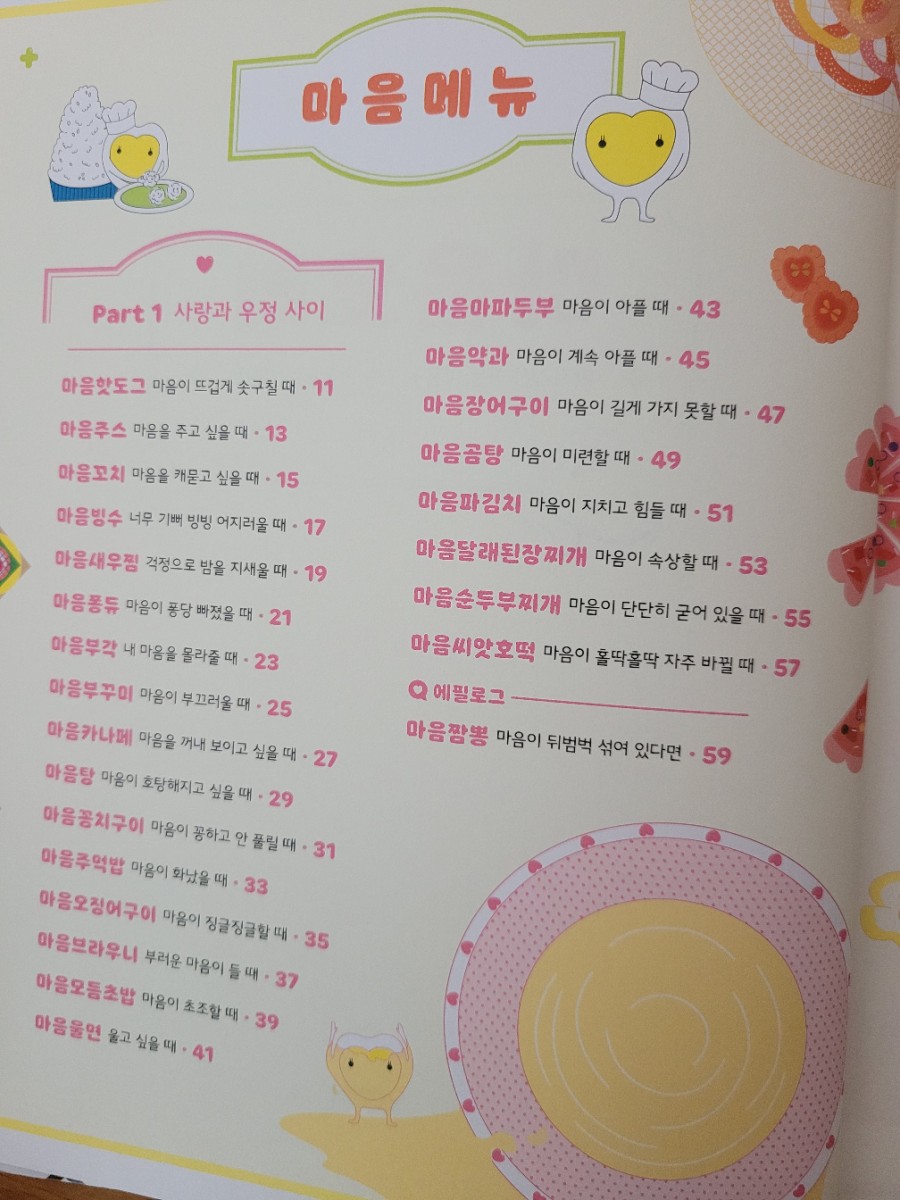 마음메뉴
Part 1 사랑과 우정 사이
마음핫도그 마음이 뜨겁게 솟구칠 때 · 11
마음주스 마음을 주고 싶을 때 · 13
마음꼬치 마음을 캐묻고 싶을 때 · 15
마음빙수 너무 기뻐 빙빙 어지러울 때 · 17
마음새우찜 걱정으로 밤을 지새울 때 · 19
마음퐁듀 마음이 퐁당 빠졌을 때 · 21
마음부각 내 마음을 몰라줄 때 · 23
마음부꾸미 마음이 부끄러울 때 · 25
마음카나페 마음을 꺼내 보이고 싶을 때 · 27
마음탕 마음이 호탕해지고 싶을 때 · 29
마음꽁치구이 마음이 꽁하고 안 풀릴 때 · 31
마음주먹밥 마음이 화났을 때 · 33
마음오징어구이 마음이 징글징글할 때 · 35
마음브라우니 부러운 마음이 들 때 · 37
마음모둠초밥 마음이 초조할 때 · 39
마음울면 울고 싶을 때 · 41
마음마파두부 마음이 아플 때 · 43
마음약과 마음이 계속 아플 때 · 45
마음장어구이 마음이 길게 가지 못할 때 · 47
마음곰탕 마음이 미련할 때 · 49
마음파김치 마음이 지치고 힘들 때 · 51
마음달래된장찌개 마음이 속상할 때 · 53
마음순두부찌개 마음이 단단히 굳어 있을 때 · 55
마음씨앗호떡 마음이 홀딱홀딱 자주 바뀔 때 · 57
Q 에필로그
마음짬뽕 마음이 뒤범벅 섞여 있다면 · 59